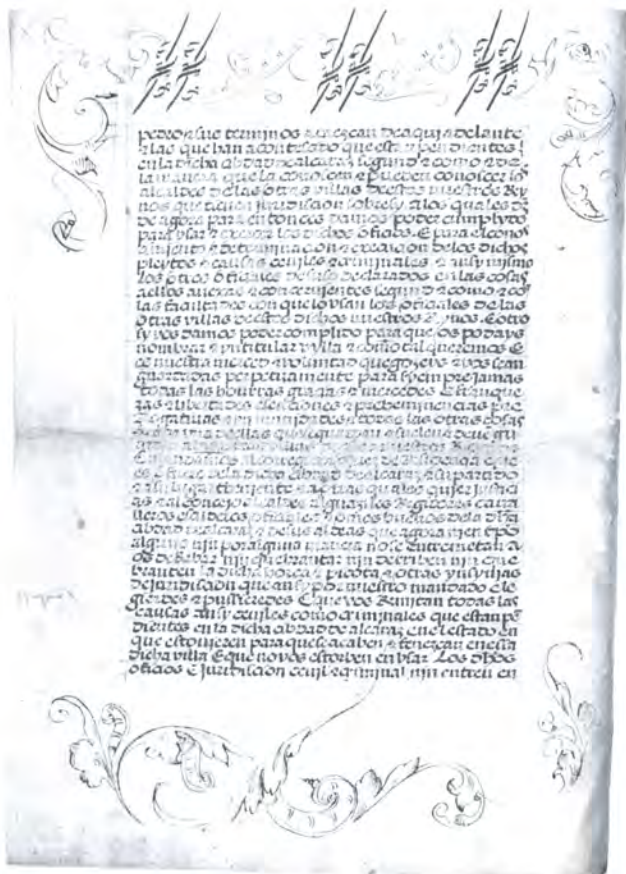 pedro & sus terminos & nezcan de aqui adelante
& las que han acontesçido que estan pendientes
en la dicha çibdad de alcaraz segund & como & de
la manera que la conosçen & pueden conosçer los
alcaldes de las otras villas destos nuestros Rey
nos que tienen juridiçion sobre sy a los quales des
de agora para entonçes damos poder cumplydo
para vsar & exerçer los dichos ofiçios. E para el conos
çimiento & determinaçion & execuçion de los dichos
pleytos & causas çeviles & criminales & ansy mismo
los otros ofiçiales de suso declarados en las cosas
a ellos anexas & conçernientes segund & como & co
las facultades con que lo vsan los ofiçiales de las
otras villas destos dichos nuestros Reynos. E otro
sy vos damos poder complido para que os podays
nombrar & yntitular villa & como tal queremos E
es nuestra merçed & voluntad que gozeys & vos sean
guardadas perpetuamente para syempre jamas
todas las honrras graçias & merçedes E franque
zas & libertades esençiones & preheminençias pre
rrogatiuas & ynmunidades & todas las otras cosas
E mandamos al
es o fuere de la dicha çibdad de alcaraz & su partido
& a su lugar theniente & a otras quales quier justiçi
as & al conçejo alcaldes alguaziles Regidores caua
lleros escuderos ofiçiales & omes buenos de la dha
çibdad de alcaraz & de sus aldeas que agora ni en tpo
alguno nin por alguna manera no se entremetan a
os derribar nin quebrantar nin derriben nin que
branten la dicha horca & picota & otras ynsynias
de juridiçion que ansy por nuestro mandado e le
gierdes & pusieredes E que vos Remitan todas las
causas ansy çeviles como criminales que estan pe
dientes en la dicha çibdad de alcaraz en el estado en
que estovieren para que se acaben & fenezcan en essa
dicha villa E que no vos estorben en vsar Los dhos
ofiçios E juridiçion çeuil & criminal nin entren en